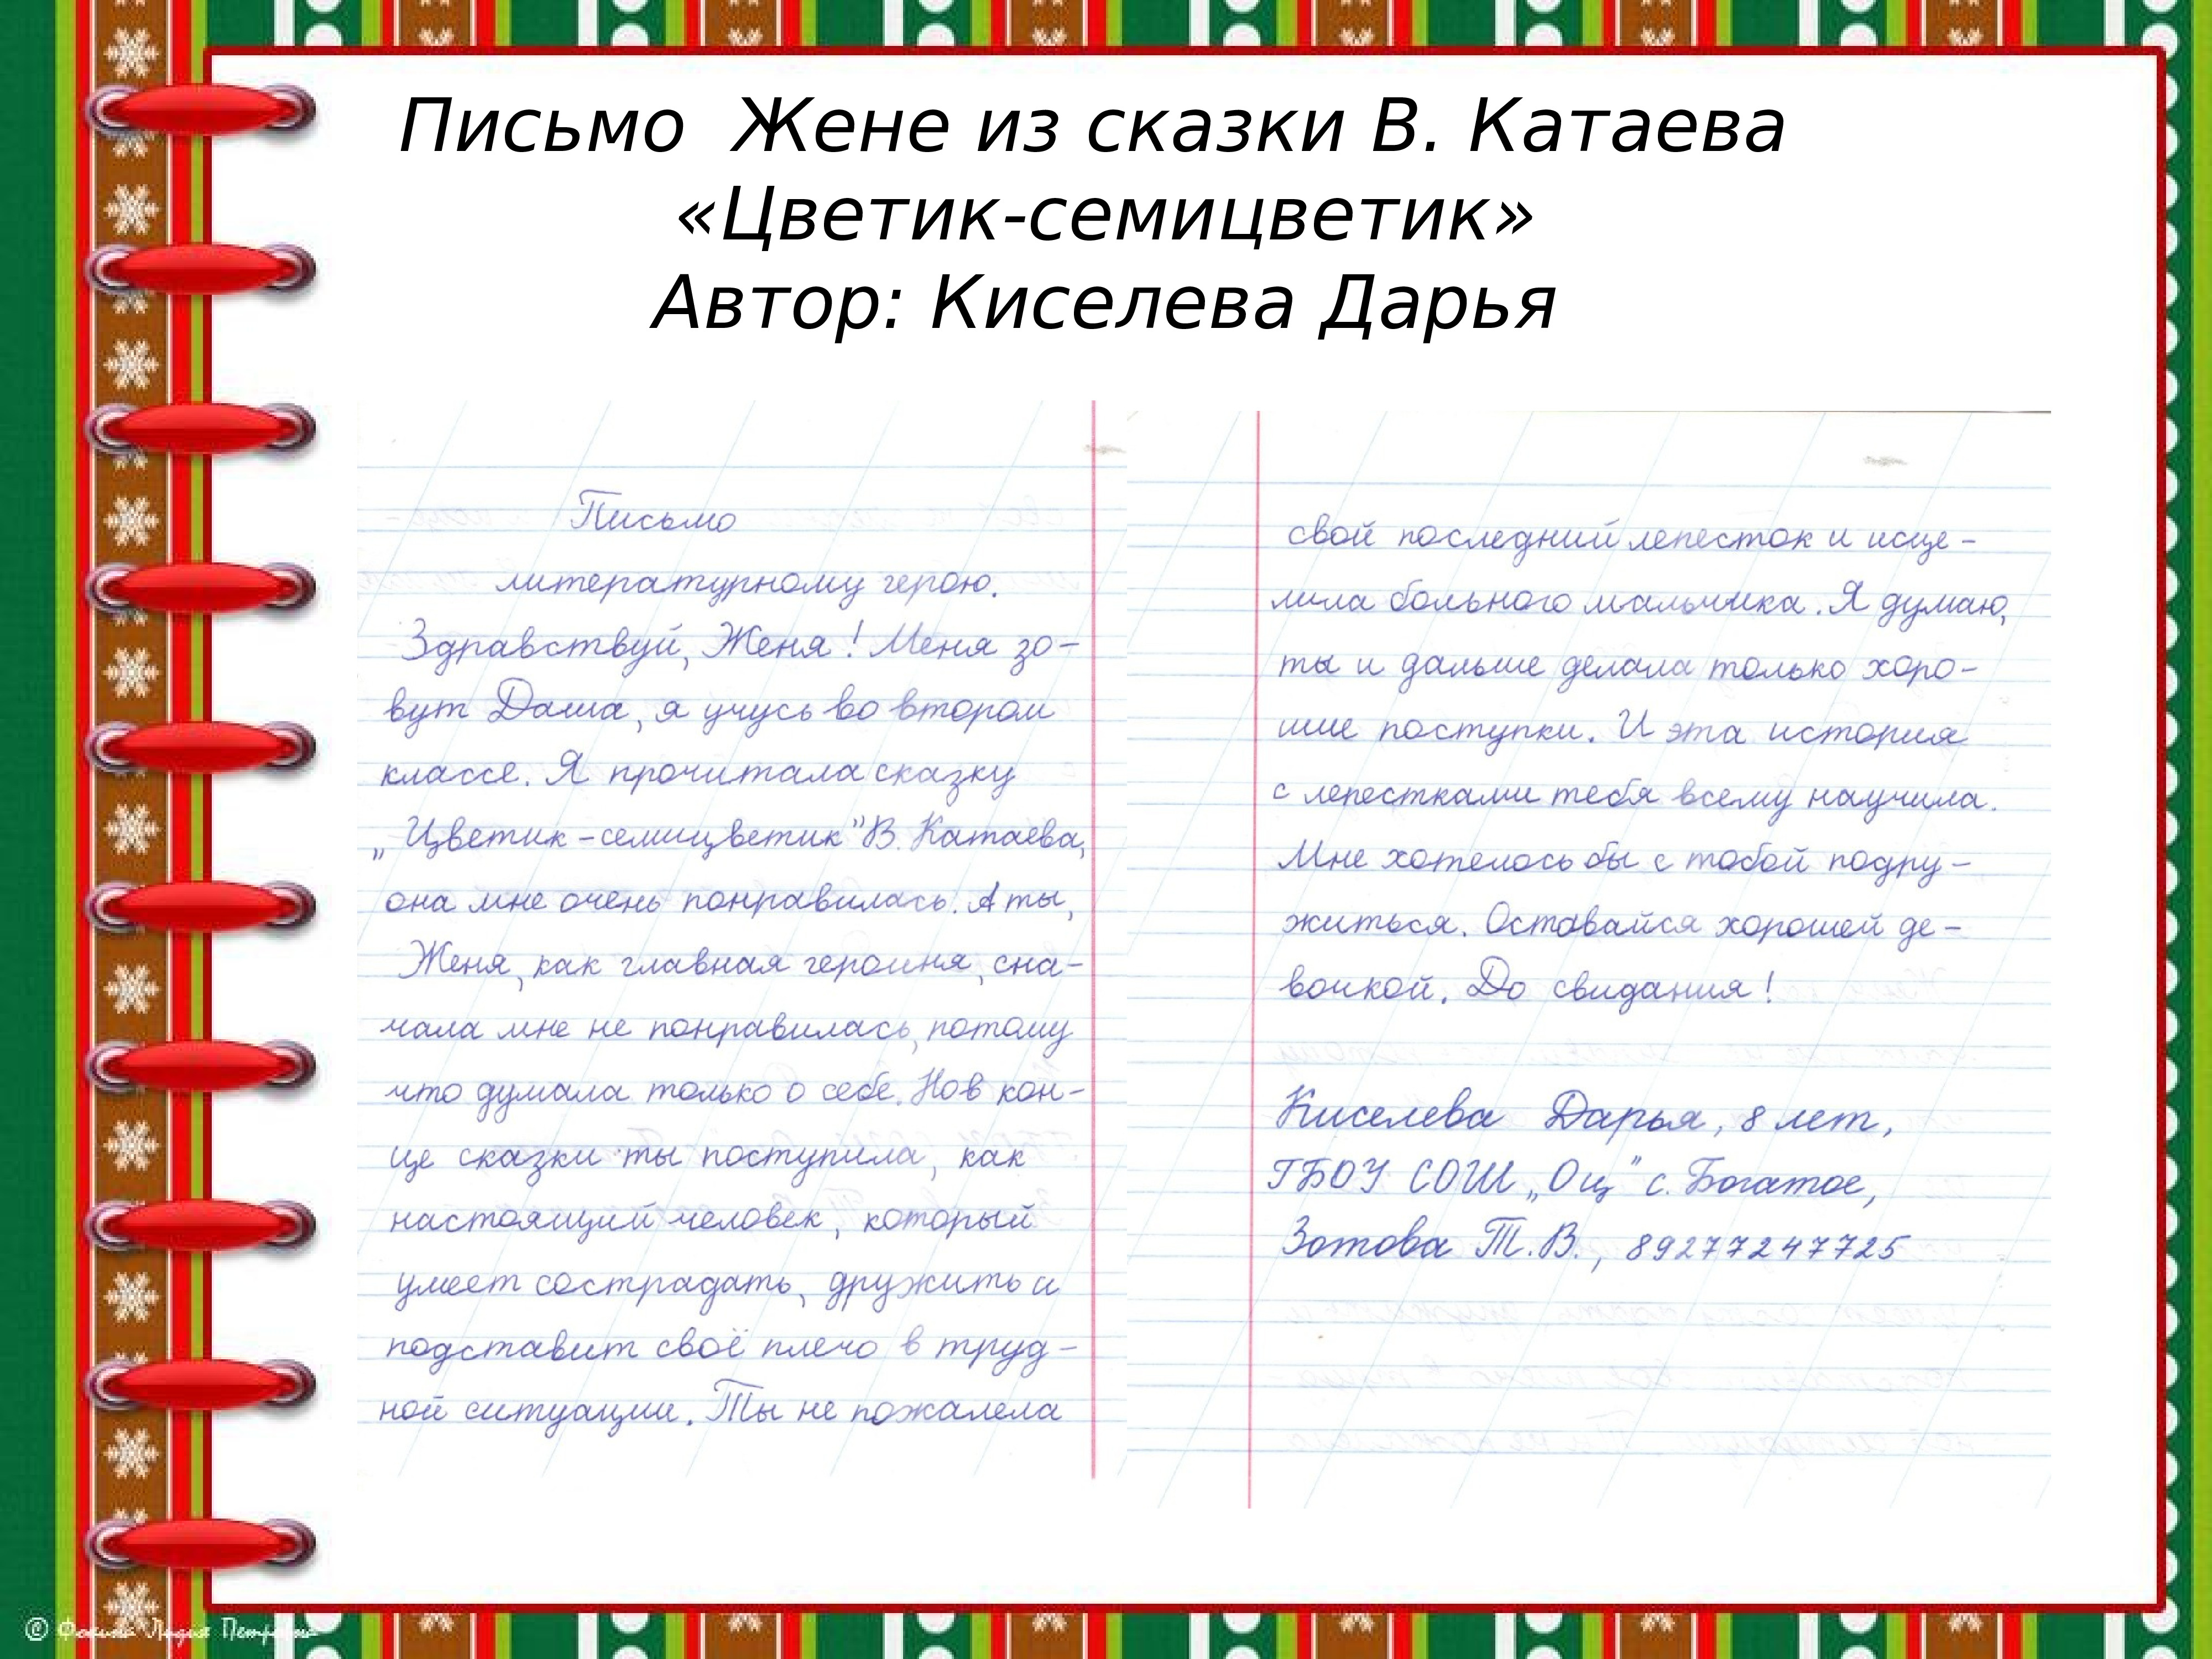 Письмо Жене из сказки В. Катаева
«Цветик-семицветик»
Автор: Киселева Дарья
Письмо
литературному герою.
Здравствуй, Женя! Меня зо-
вут Даша, я учусь во втором
классе. Я прочитала сказку
„Цветик-семицветик" В. Катаева,
она мне очень понравилась. А ты,
Женя, как главная героиня, сна-
чала мне не понравилась, потому
что думала только о себе. Но в кон-
це сказки ты поступила, как
настоящий человек, который
умеет сострадать, дружить и
подставит своё плечо в труд-
ной ситуации. Ты не пожалела
свой последний лепесток и исце-
лила больного мальчика. Я думаю,
ты и дальше делала только хоро-
шие поступки. И эта история
с лепестками тебя всему научила.
Мне хотелось бы с тобой подру-
житься. Оставайся хорошей де-
вочкой. До свидания!
Киселева Дарья, 8 лет,
ГБОУ СОШ „Оц" с. Богатое,
Зотова Т.В., 89277247725
© Фокина Лидия Петровна